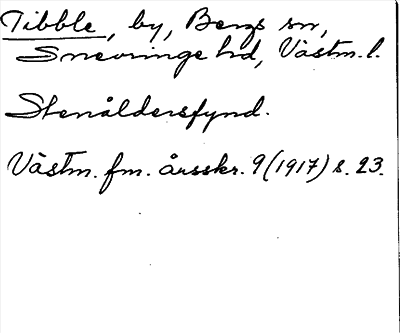 Tibble, by, Bergs sn,
Snevringe hd, Västm. l.
Stenåldersfynd.
Västm. fm. årsskr. 9 (1917) s. 23.